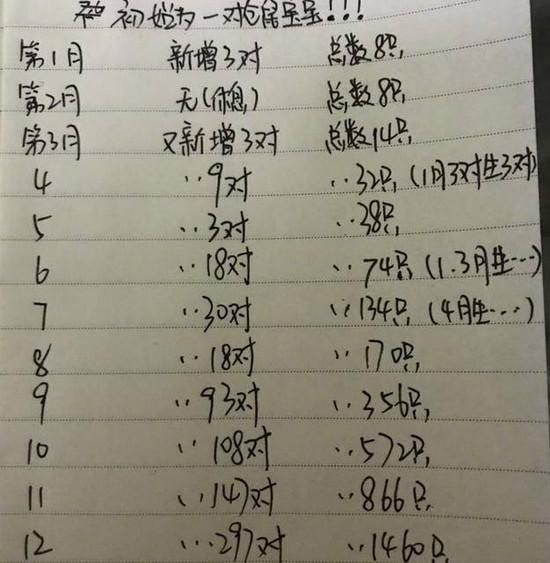 初始为一对仓鼠呈呈!!!
第1月 新增3对 总数8只
第2月 无(休息) 总数8只
第3月 又新增3对 总数14只
4 ··9对 ··32只 (1月3对生3对)
5 ··3对 ··38只
6 ··18对 ··74只 (1.3月生···)
7 ··30对 ··134只 (4月生···)
8 ··18对 ··170只
9 ··93对 ··356只
10 ··108对 ··572只
11 ··147对 ··866只
12 ···297对 ··1460只